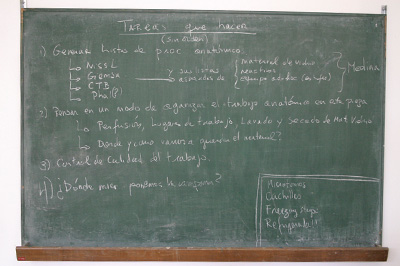 Tareas que hacer
(sin orden)
1) Generar lista de proc anatómico.
Nissl
Giemsa
CTB
PhaL
y sus listas
material de vidrio
reactivos
Medina
2) Pensar en un modo de organizar el trabajo anatómico en esta pieza
Perfusión, Lugares de trabajo, Lavado y Secado de Mat Vidrio
Donde y como vamos a guardar el material?
3) Control de Calidad del trabajo.
4) ¿Dónde
Micrótomos
Cuchillos
Freezing
Refrigerador